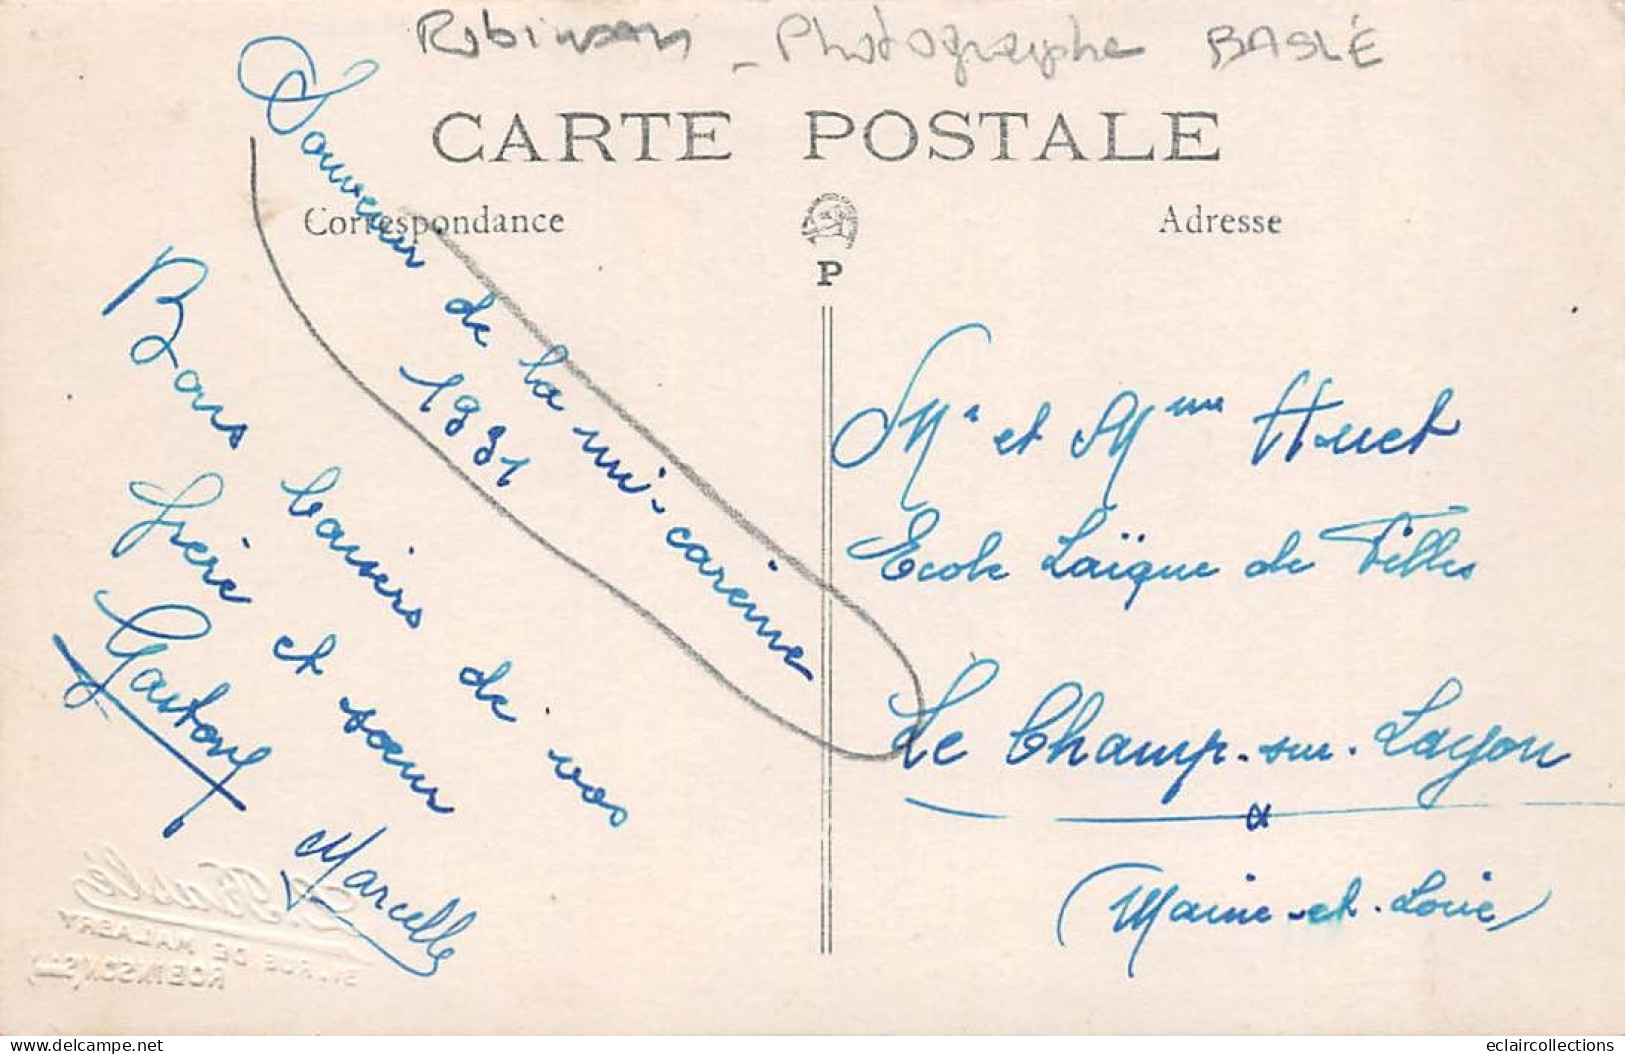 Robinson - Photographe BASLÉ
CARTE POSTALE
Correspondance
Adresse
P
Souvenir de la mi-carême
1931
Bons baisers de vos
frère et sœur
Gaston Marcelle
Mr et Mme Huet
Ecole Laïque de Filles
Le Champ-sur-Layon
(Maine-et-Loire)
Baslé
RUE DE MALABRY
ROBINSON
delcampe.net
eclaircollections